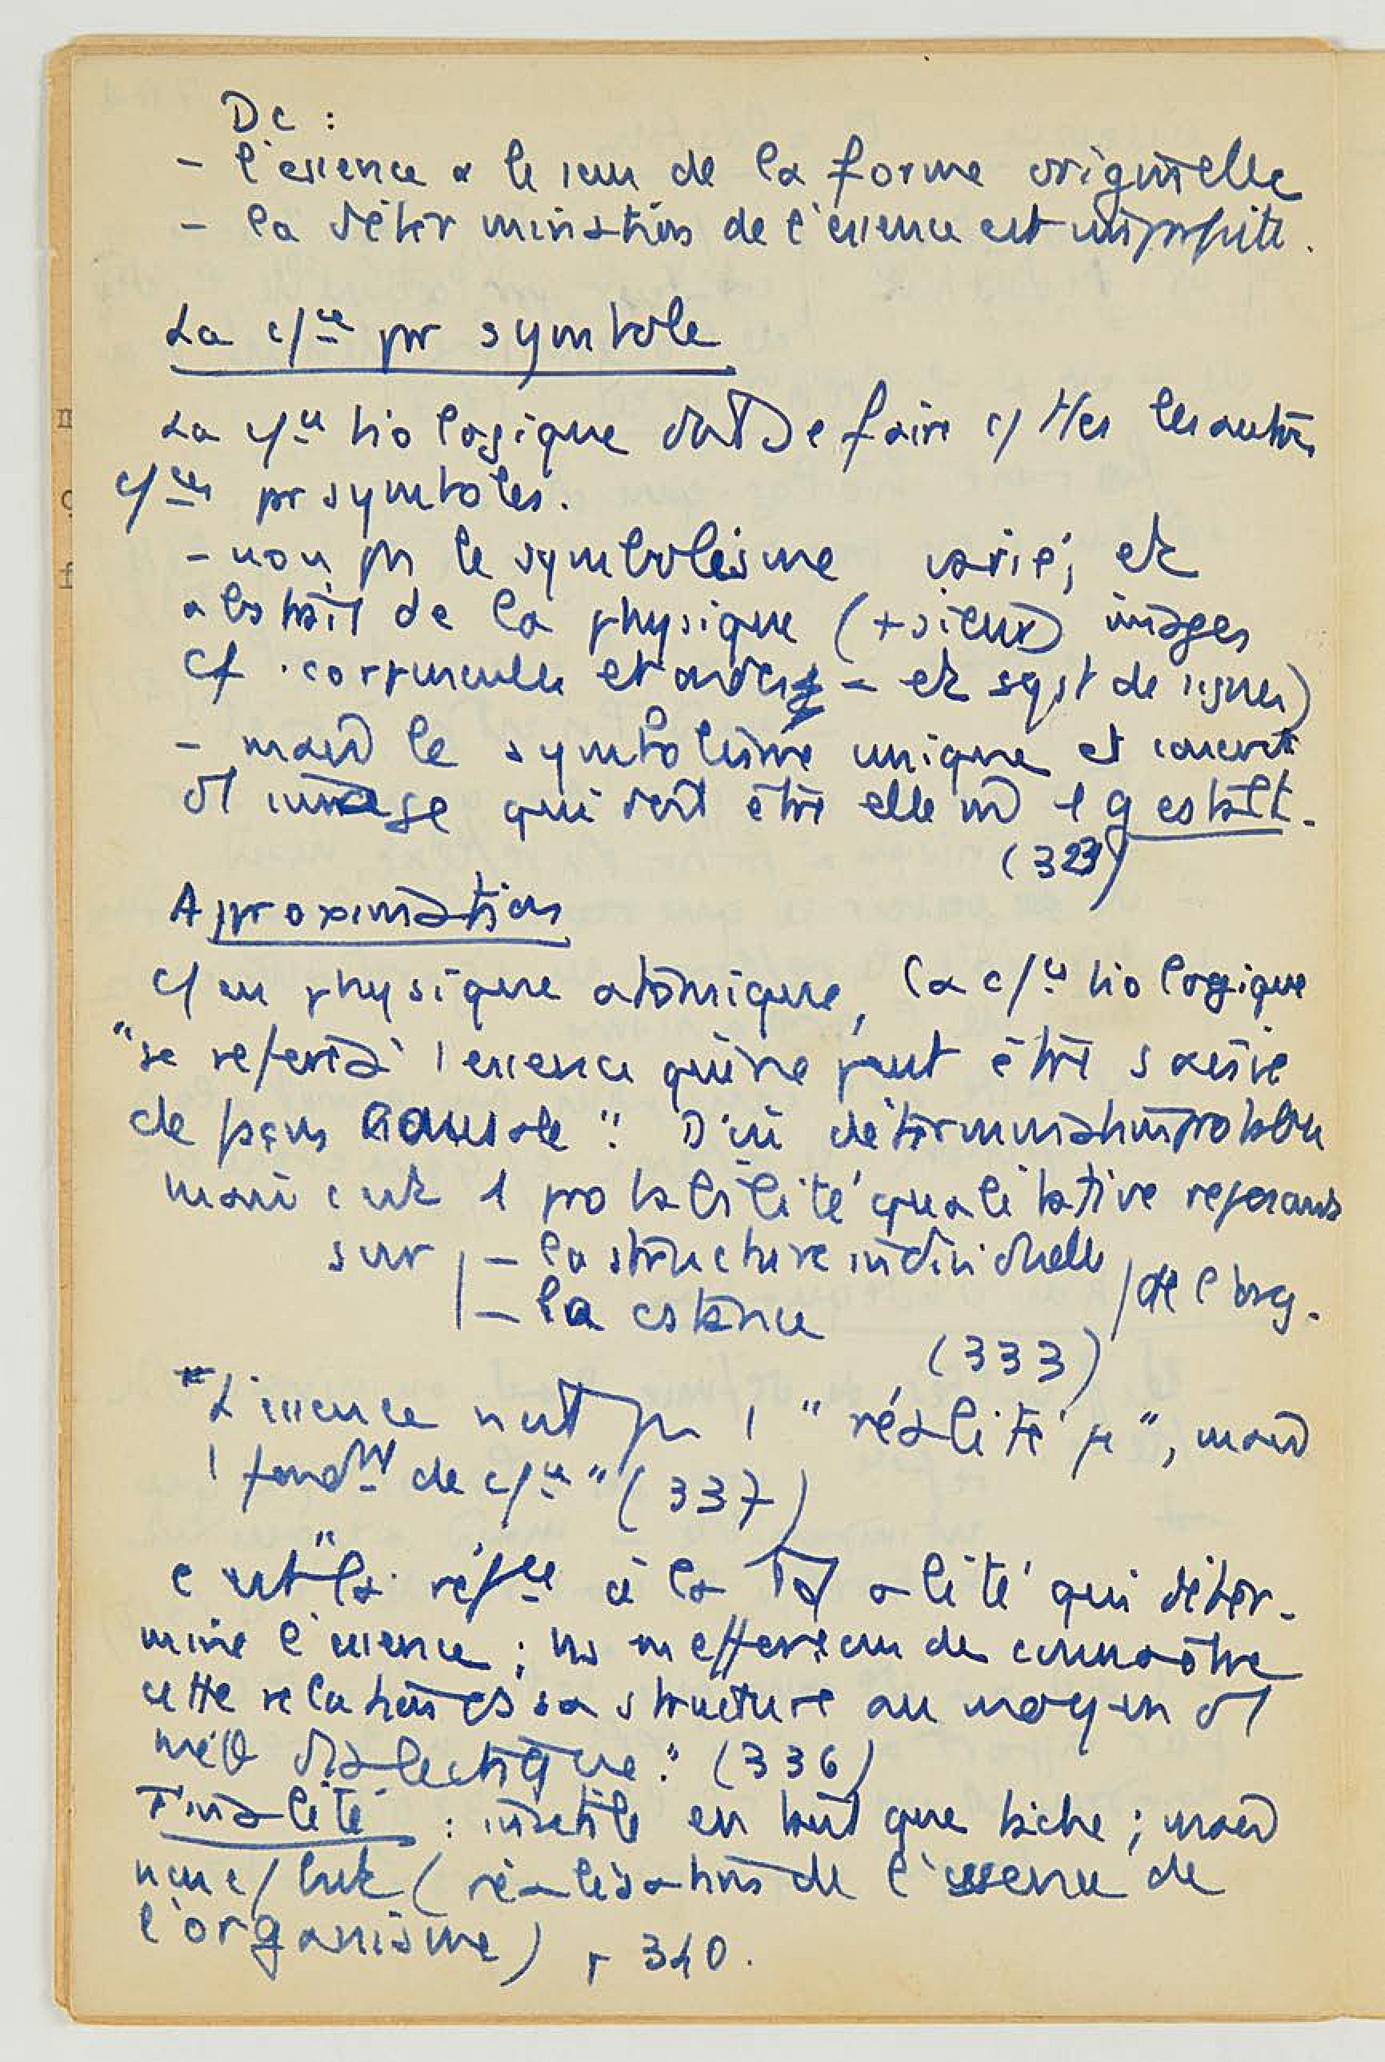 Dc :
- l'essence a le sens de la forme originelle
- la détermination de l'essence est imparfaite.
La c/ce pr symbole
La c/ce biologique doit se faire c/ ttes les autres
c/ces pr symboles.
- non pr le symbolisme varié, et
abstrait de la physique (+sieurs images
cf. corpuscule et ondes - et syst de signes)
- mais le symbolisme unique et concret
d1 image qui doit être elle m 1 gestalt.
(323)
Approximation
c/ en physique atomique, la c/ce biologique
"se réfère à l'essence qui ne peut être saisie
de façon causale". D'où détermination probable
mais c'est 1 probabilité qualitative reposant
sur | - la structure individuelle
| - la cstance / de l'org.
(333)
"L'essence n'est pas 1 "réalité", mais
1 fondMt de c/ce" (337)
c'est "la réfce à la totalité qui déter-
mine l'essence ; ns ns efforçons de connaître
cette relation ds sa structure au moyen d1
méθ dialectique." (336)
Finalité : inutile en tant que tâche ; mais
non c/ but (réalisation de l'essence de
l'organisme) p 340.